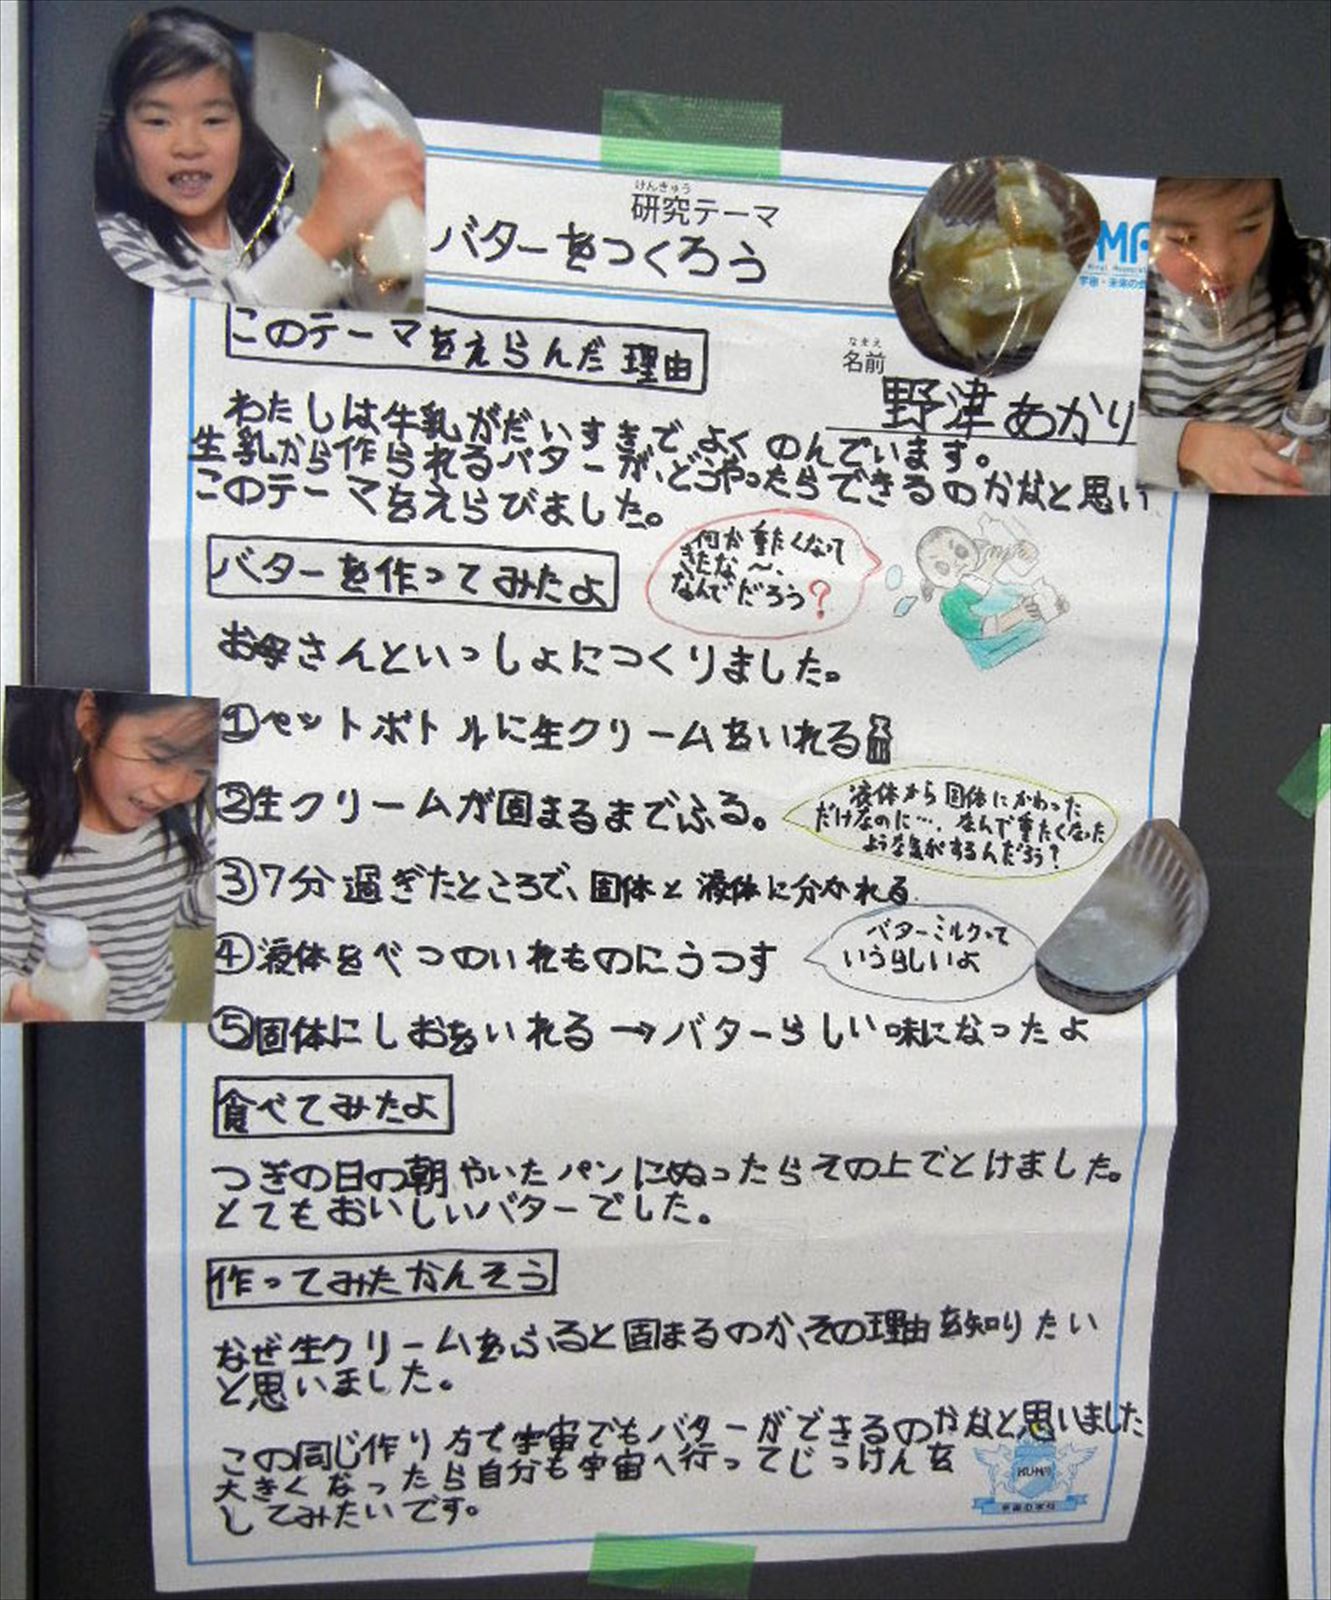 けんきゅう
研究テーマ
バターをつくろう
なまえ
名前
野津あかり
このテーマをえらんだ理由
わたしは牛乳がだいすきでよくのんでいます。
生乳から作られるバターが、どうやったらできるのかなと思い
このテーマをえらびました。
バターを作ってみたよ
何か重たくなって
きたな〜、
なんでだろう?
お母さんといっしょにつくりました。
①ペットボトルに生クリームをいれる
②生クリームが固まるまでふる。
液体から固体にかわった
だけなのに…、なんで重たくなった
ような気がするんだろう?
③7分過ぎたところで、固体と液体に分かれる
④液体をべつのいれものにうつす
バターミルクって
いうらしいよ
⑤固体にしおをいれる→バターらしい味になったよ
食べてみたよ
つぎの日の朝やいたパンにぬったらその上でとけました。
とてもおいしいバターでした。
作ってみたかんそう
なぜ生クリームをふると固まるのか、その理由を知りたい
と思いました。
この同じ作り方で宇宙でもバターができるのかなと思いました
大きくなったら自分も宇宙へ行ってじっけんを
してみたいです。
KU-MA
宇宙の学校